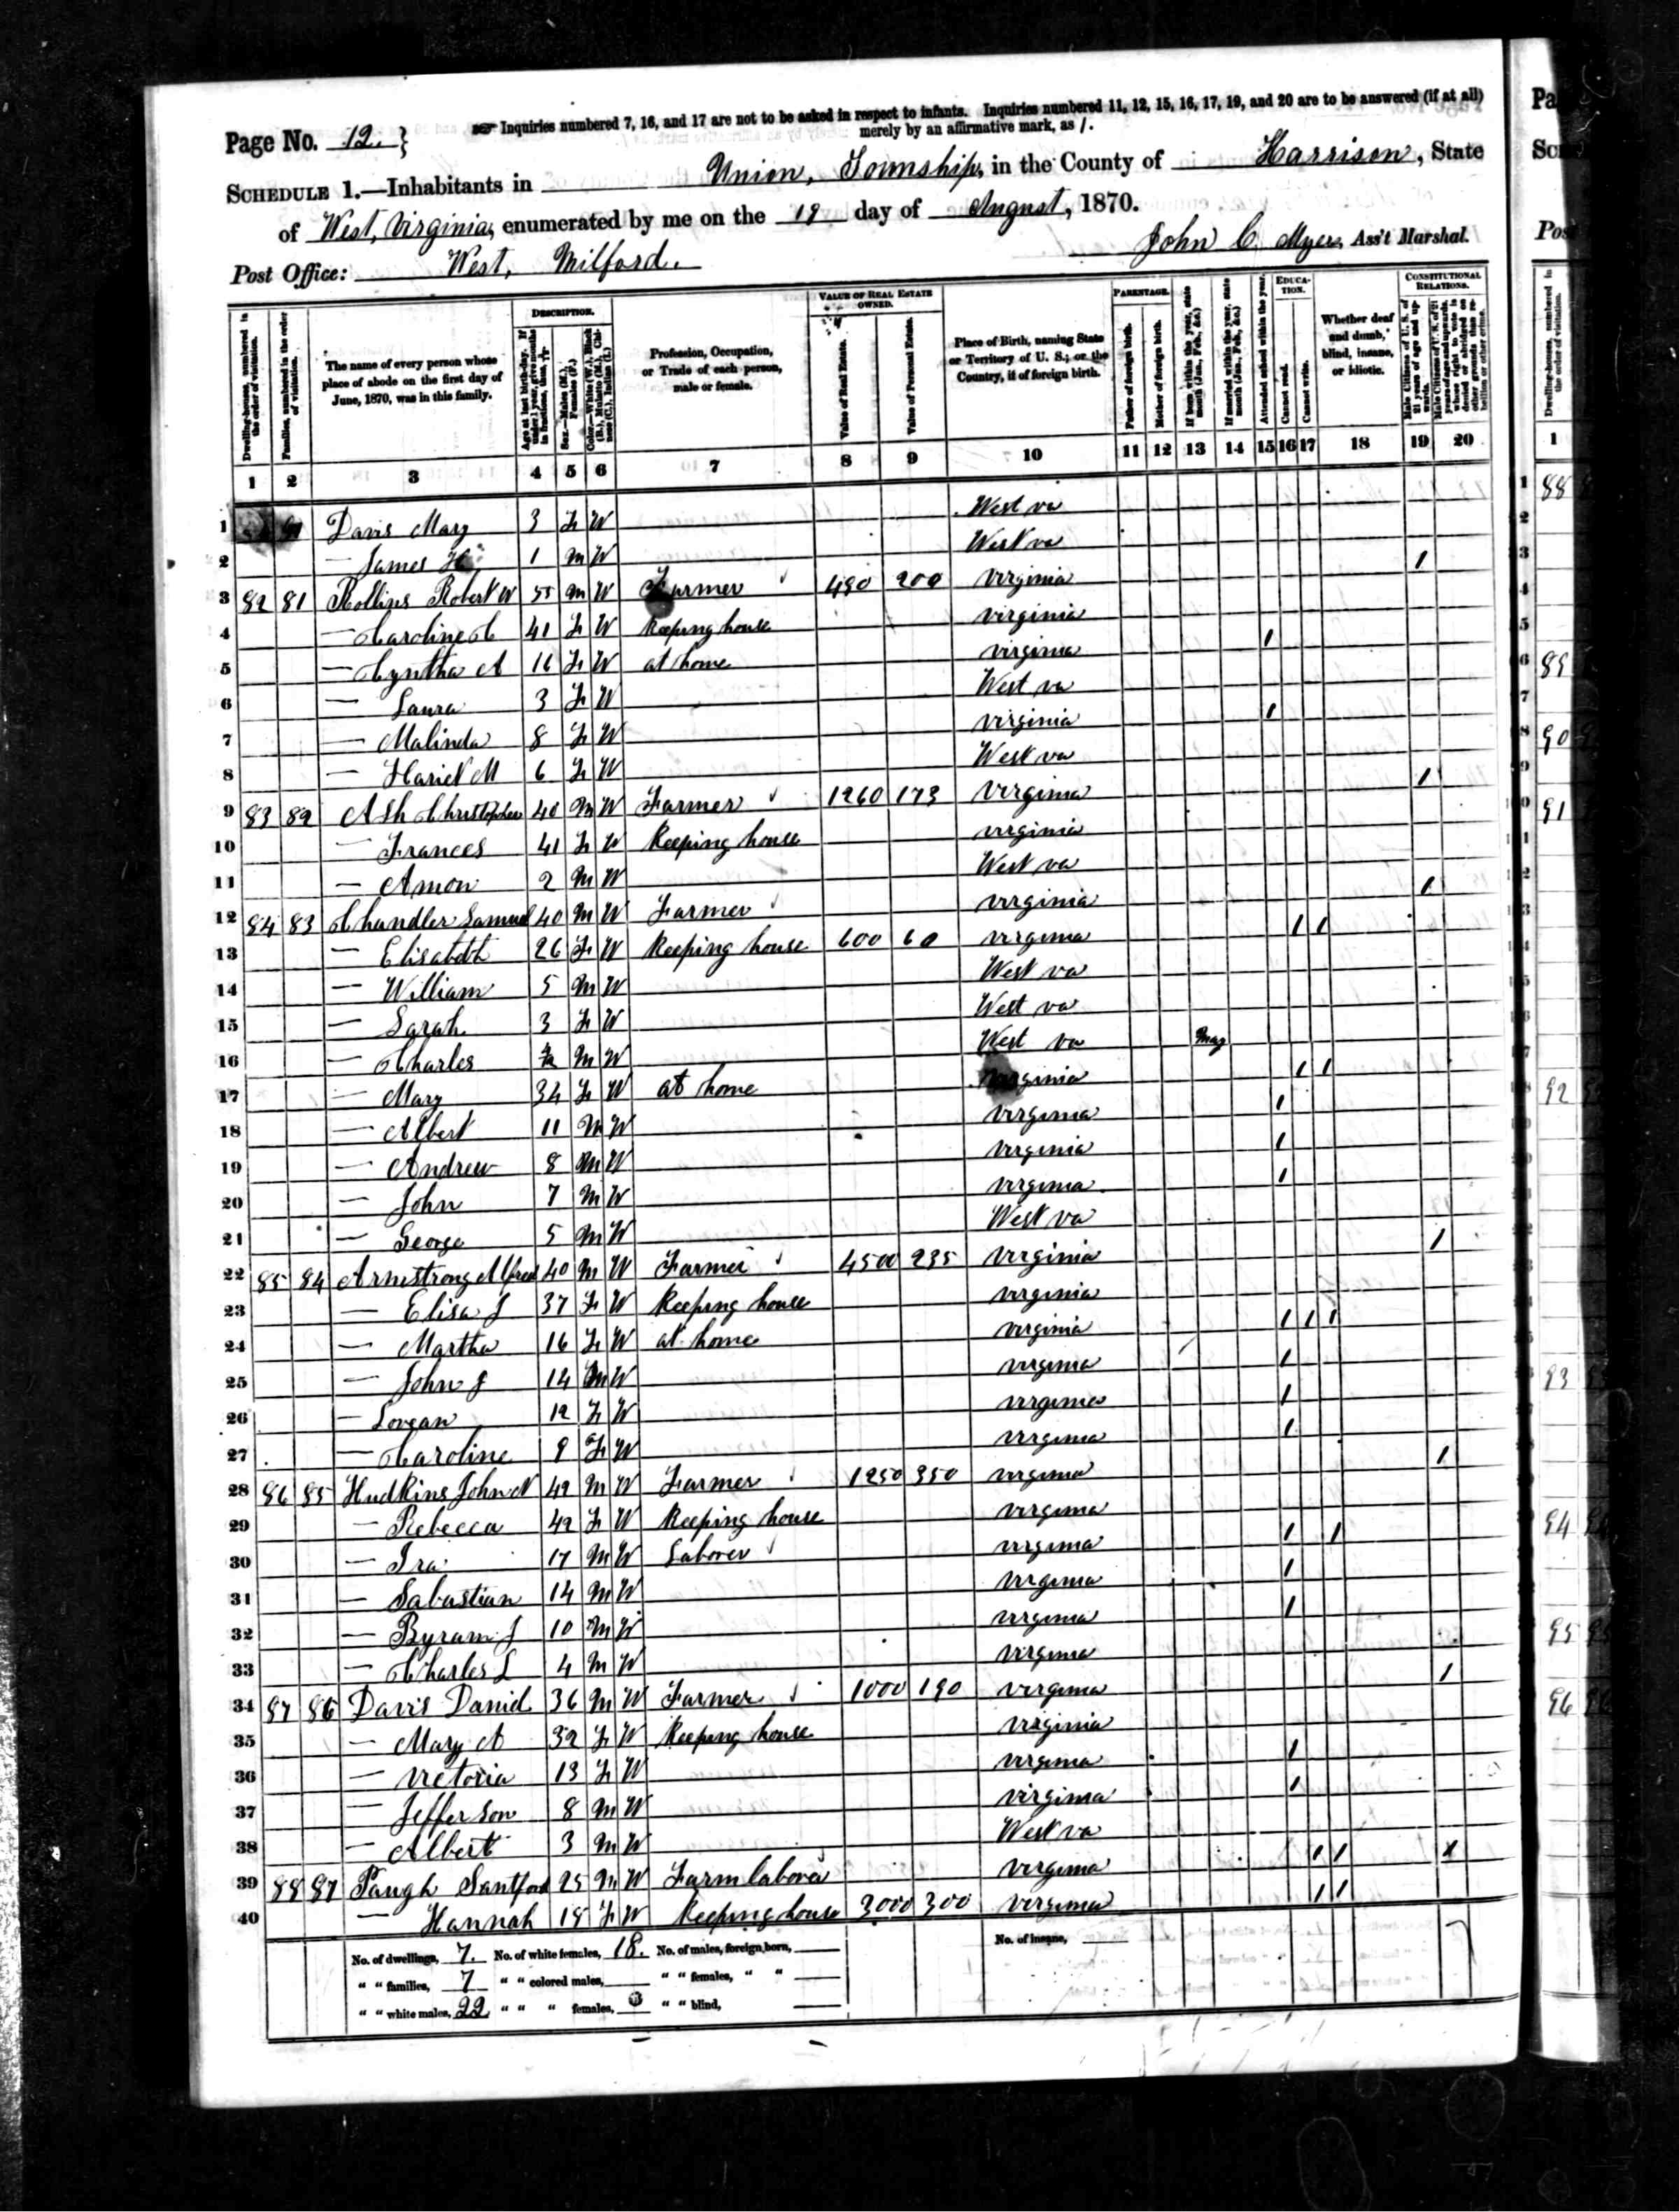 Page No. 12. }
☞ Inquiries numbered 7, 16, and 17 are not to be asked in respect to infants. Inquiries numbered 11, 12, 15, 16, 17, 19, and 20 are to be answered (if at all)
merely by an affirmative mark, as /.
SCHEDULE 1.—Inhabitants in Union, Township, in the County of Harrison, State
of West, Virginia, enumerated by me on the 19 day of August, 1870.
Post Office: West, Milford.
John C Myer, Ass't Marshal.
Dwelling-houses, numbered in the order of visitation.
Families, numbered in the order of visitation.
The name of every person whose place of abode on the first day of June, 1870, was in this family.
DESCRIPTION.
Age at last birth-day. If under 1 year, give months in fractions, thus, 3/12
Sex.—Males (M.), Females (F.)
Color.—White (W.), Black (B.), Mulatto (M.), Chinese (C.), Indian (I.)
Profession, Occupation, or Trade of each person, male or female.
VALUE OF REAL ESTATE OWNED.
Value of Real Estate.
Value of Personal Estate.
Place of Birth, naming State or Territory of U. S.; or the Country, if of foreign birth.
PARENTAGE.
Father of foreign birth.
Mother of foreign birth.
If born within the year, state month (Jan., Feb., &c.)
If married within the year, state month (Jan., Feb., &c.)
Attended school within the year.
EDUCATION.
Cannot read.
Cannot write.
Whether deaf and dumb, blind, insane, or idiotic.
CONSTITUTIONAL RELATIONS.
Male Citizens of U. S. of 21 years of age and upwards.
Male Citizens of U. S. of 21 years of age and upwards, whose right to vote is denied or abridged on other grounds than rebellion or other crime.
1 2 3 4 5 6 7 8 9 10 11 12 13 14 15 16 17 18 19 20
1 Davis Mary 3 F W West va
2 — James H 1 M W West va
3 82 81 Rollins Robert W 55 M W Farmer 480 200 Virginia /
4 — Caroline C 41 F W Keeping house Virginia
5 — Cyntha A 16 F W at home Virginia /
6 — Laura 3 F W West va
7 — Malinda 8 F W Virginia /
8 — Hariet M 6 F W West va
9 83 82 Ash Christopher 40 M W Farmer 1260 173 Virginia /
10 — Frances 41 F W Keeping house Virginia
11 — Amon 2 M W West va
12 84 83 Chandler Samuel 40 M W Farmer Virginia /
13 — Elisabeth 26 F W Keeping house 600 60 Virginia / /
14 — William 5 M W West va
15 — Sarah 3 F W West va
16 — Charles M W West va May
17 — Mary 34 F W at home Virginia / /
18 — Albert 11 M W Virginia /
19 — Andrew 8 M W Virginia /
20 — John 7 M W Virginia /
21 — George 5 M W West va
22 85 84 Armstrong Alfred 40 M W Farmer 4500 235 Virginia /
23 — Elisa J 37 F W Keeping house Virginia
24 — Martha 16 F W at home Virginia / / /
25 — John J 14 M W Virginia /
26 — Lovean 12 F W Virginia /
27 — Caroline 9 F W Virginia /
28 86 85 Hudkins John N 42 M W Farmer 1250 350 Virginia /
29 — Rebecca 42 F W Keeping house Virginia
30 — Ira 17 M W Laborer Virginia / /
31 — Sabastian 14 M W Virginia /
32 — Byram J 10 M W Virginia /
33 — Charles L 4 M W Virginia
34 87 86 Davis Daniel 36 M W Farmer 1000 190 Virginia /
35 — Mary A 32 F W Keeping house Virginia
36 — Victoria 13 F W Virginia /
37 — Jefferson 8 M W Virginia /
38 — Albert 3 M W West va
39 88 87 Paugh Santford 25 M W Farm labora Virginia / / /
40 — Hannah 18 F W Keeping house 3000 300 Virginia / /
No. of dwellings, 7. No. of white females, 18. No. of males, foreign born,
No. of insane,
" " families, 7 " " colored males, " " females, " "
" " white males, 22 " " " females, 0 " " blind,
Pa
Sc
Pos
Dwelling-houses, numbered in the order of visitation.
1
88
89
90
91
92
93
94
95
96